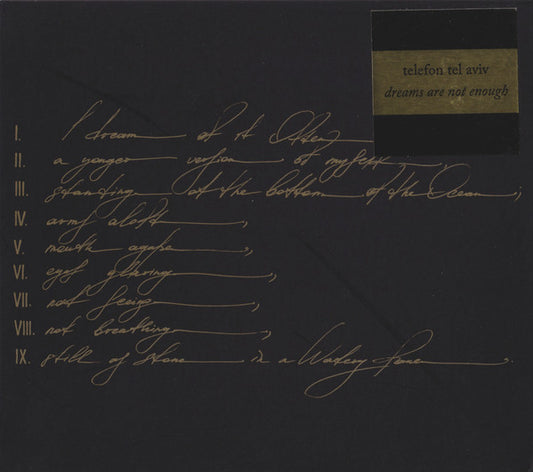 telefon tel aviv
dreams are not enough
I. I dream of it Often
II. a yonger version of myself,
III. standing at the bottom of the Ocean;
IV. arms aloft,
V. mouth agape,
VI. eyes glaring,
VII. not seeing,
VIII. not breathing,
IX. still as stone in a Watery Fane.